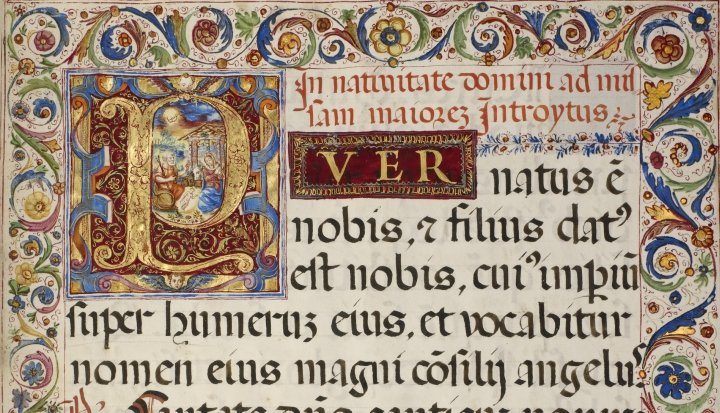 In nativitate domini ad mis
sam maiorez Introytus
PVER
natus ē
nobis, ⁊ filius datꝰ
est nobis, cuiꝰ impiū
super humeruz eius, et vocabitur
nomen eius magni cōsilij angelus